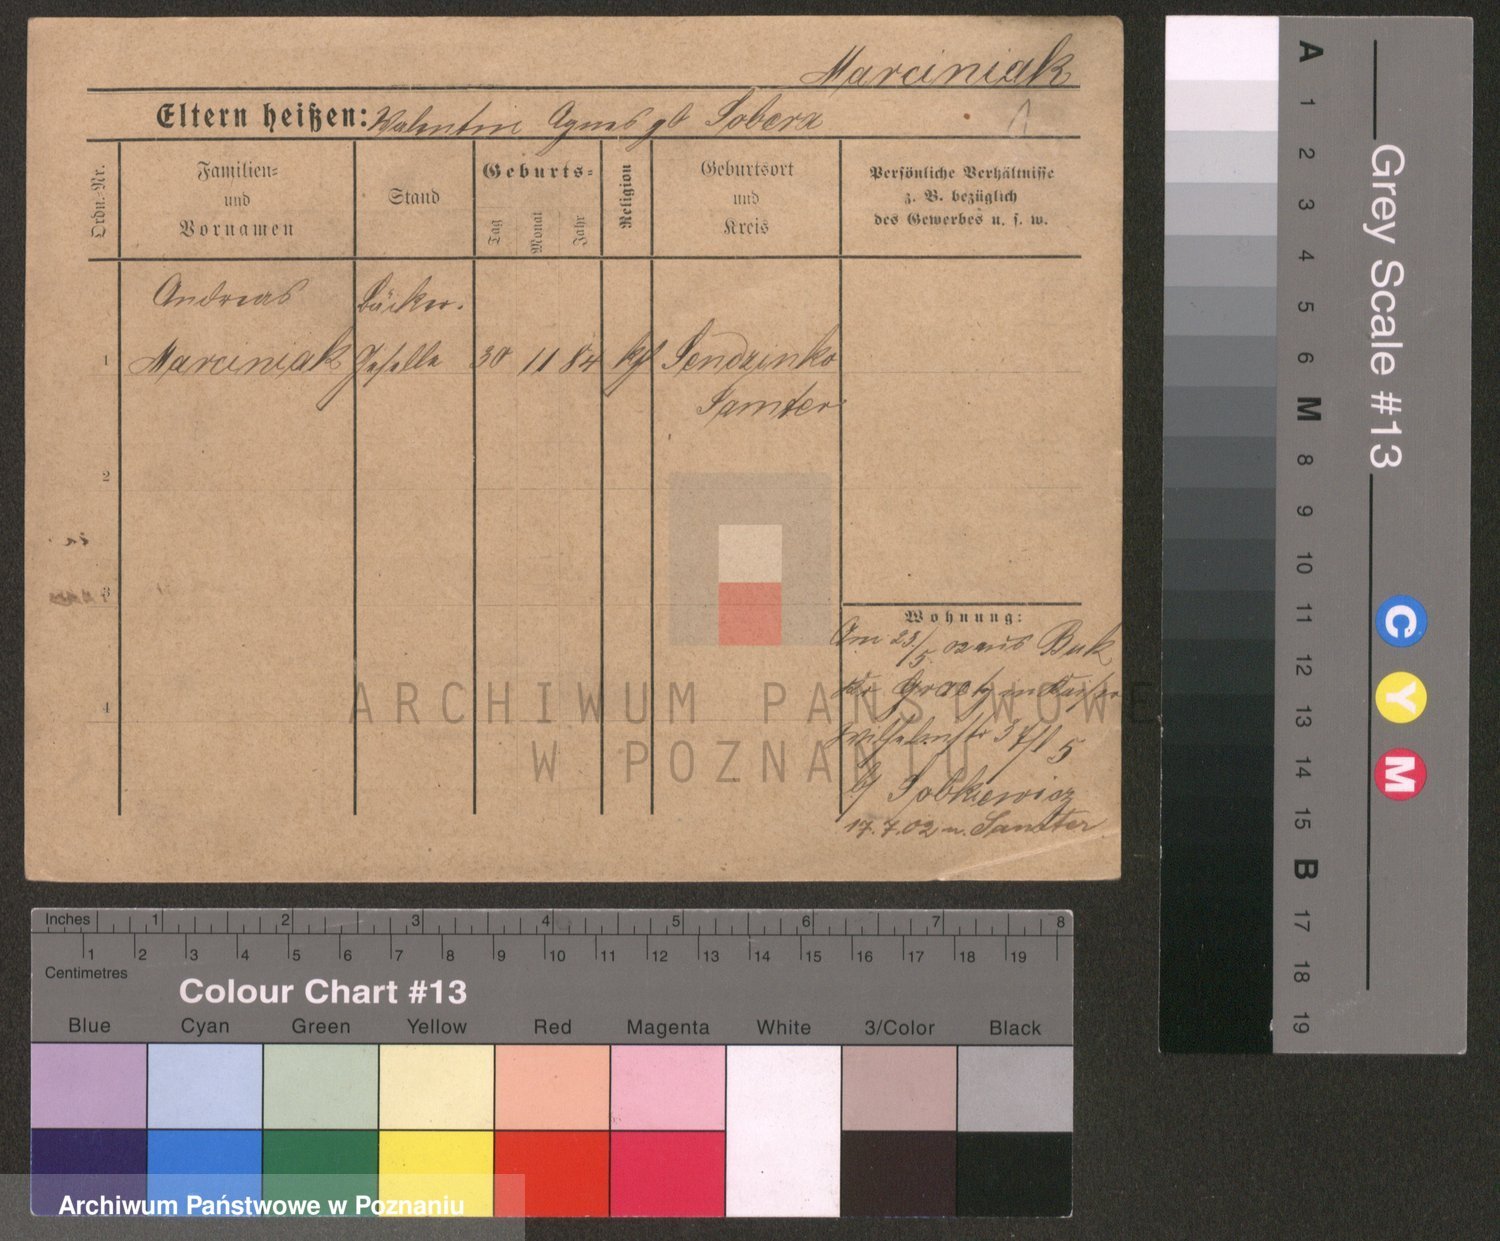 Marciniak
Eltern heißen: Valentin Agnes gb Sobera
Ordn.-Nr.
Familien-
und
Vornamen
Stand
Geburts-
Tag
Monat
Jahr
Religion
Geburtsort
und
Kreis
Persönliche Verhältnisse
z. B. bezüglich
des Gewerbes u. s. w.
Andreas Bäcker-
1 Marciniak Geselle 30 11 84 kth Sendzinko
Samter
2
3
4
Wohnung:
Am 23/5 02 aus Buk
Kr Graetz in Kaiser
Wilhelmstr 37/1 5
b/ Sobkiewicz
17.7.02 n. Samter
ARCHIWUM PAŃSTWOWE
W POZNANIU
Inches 1 2 3 4 5 6 7 8
1 2 3 4 5 6 7 8 9 10 11 12 13 14 15 16 17 18 19
Centimetres
Colour Chart #13
Blue Cyan Green Yellow Red Magenta White 3/Color Black
Archiwum Państwowe w Poznaniu
Grey Scale #13
A 1 2 3 4 5 6 M 8 9 10 11 12 13 14 15 B 17 18 19
C Y M